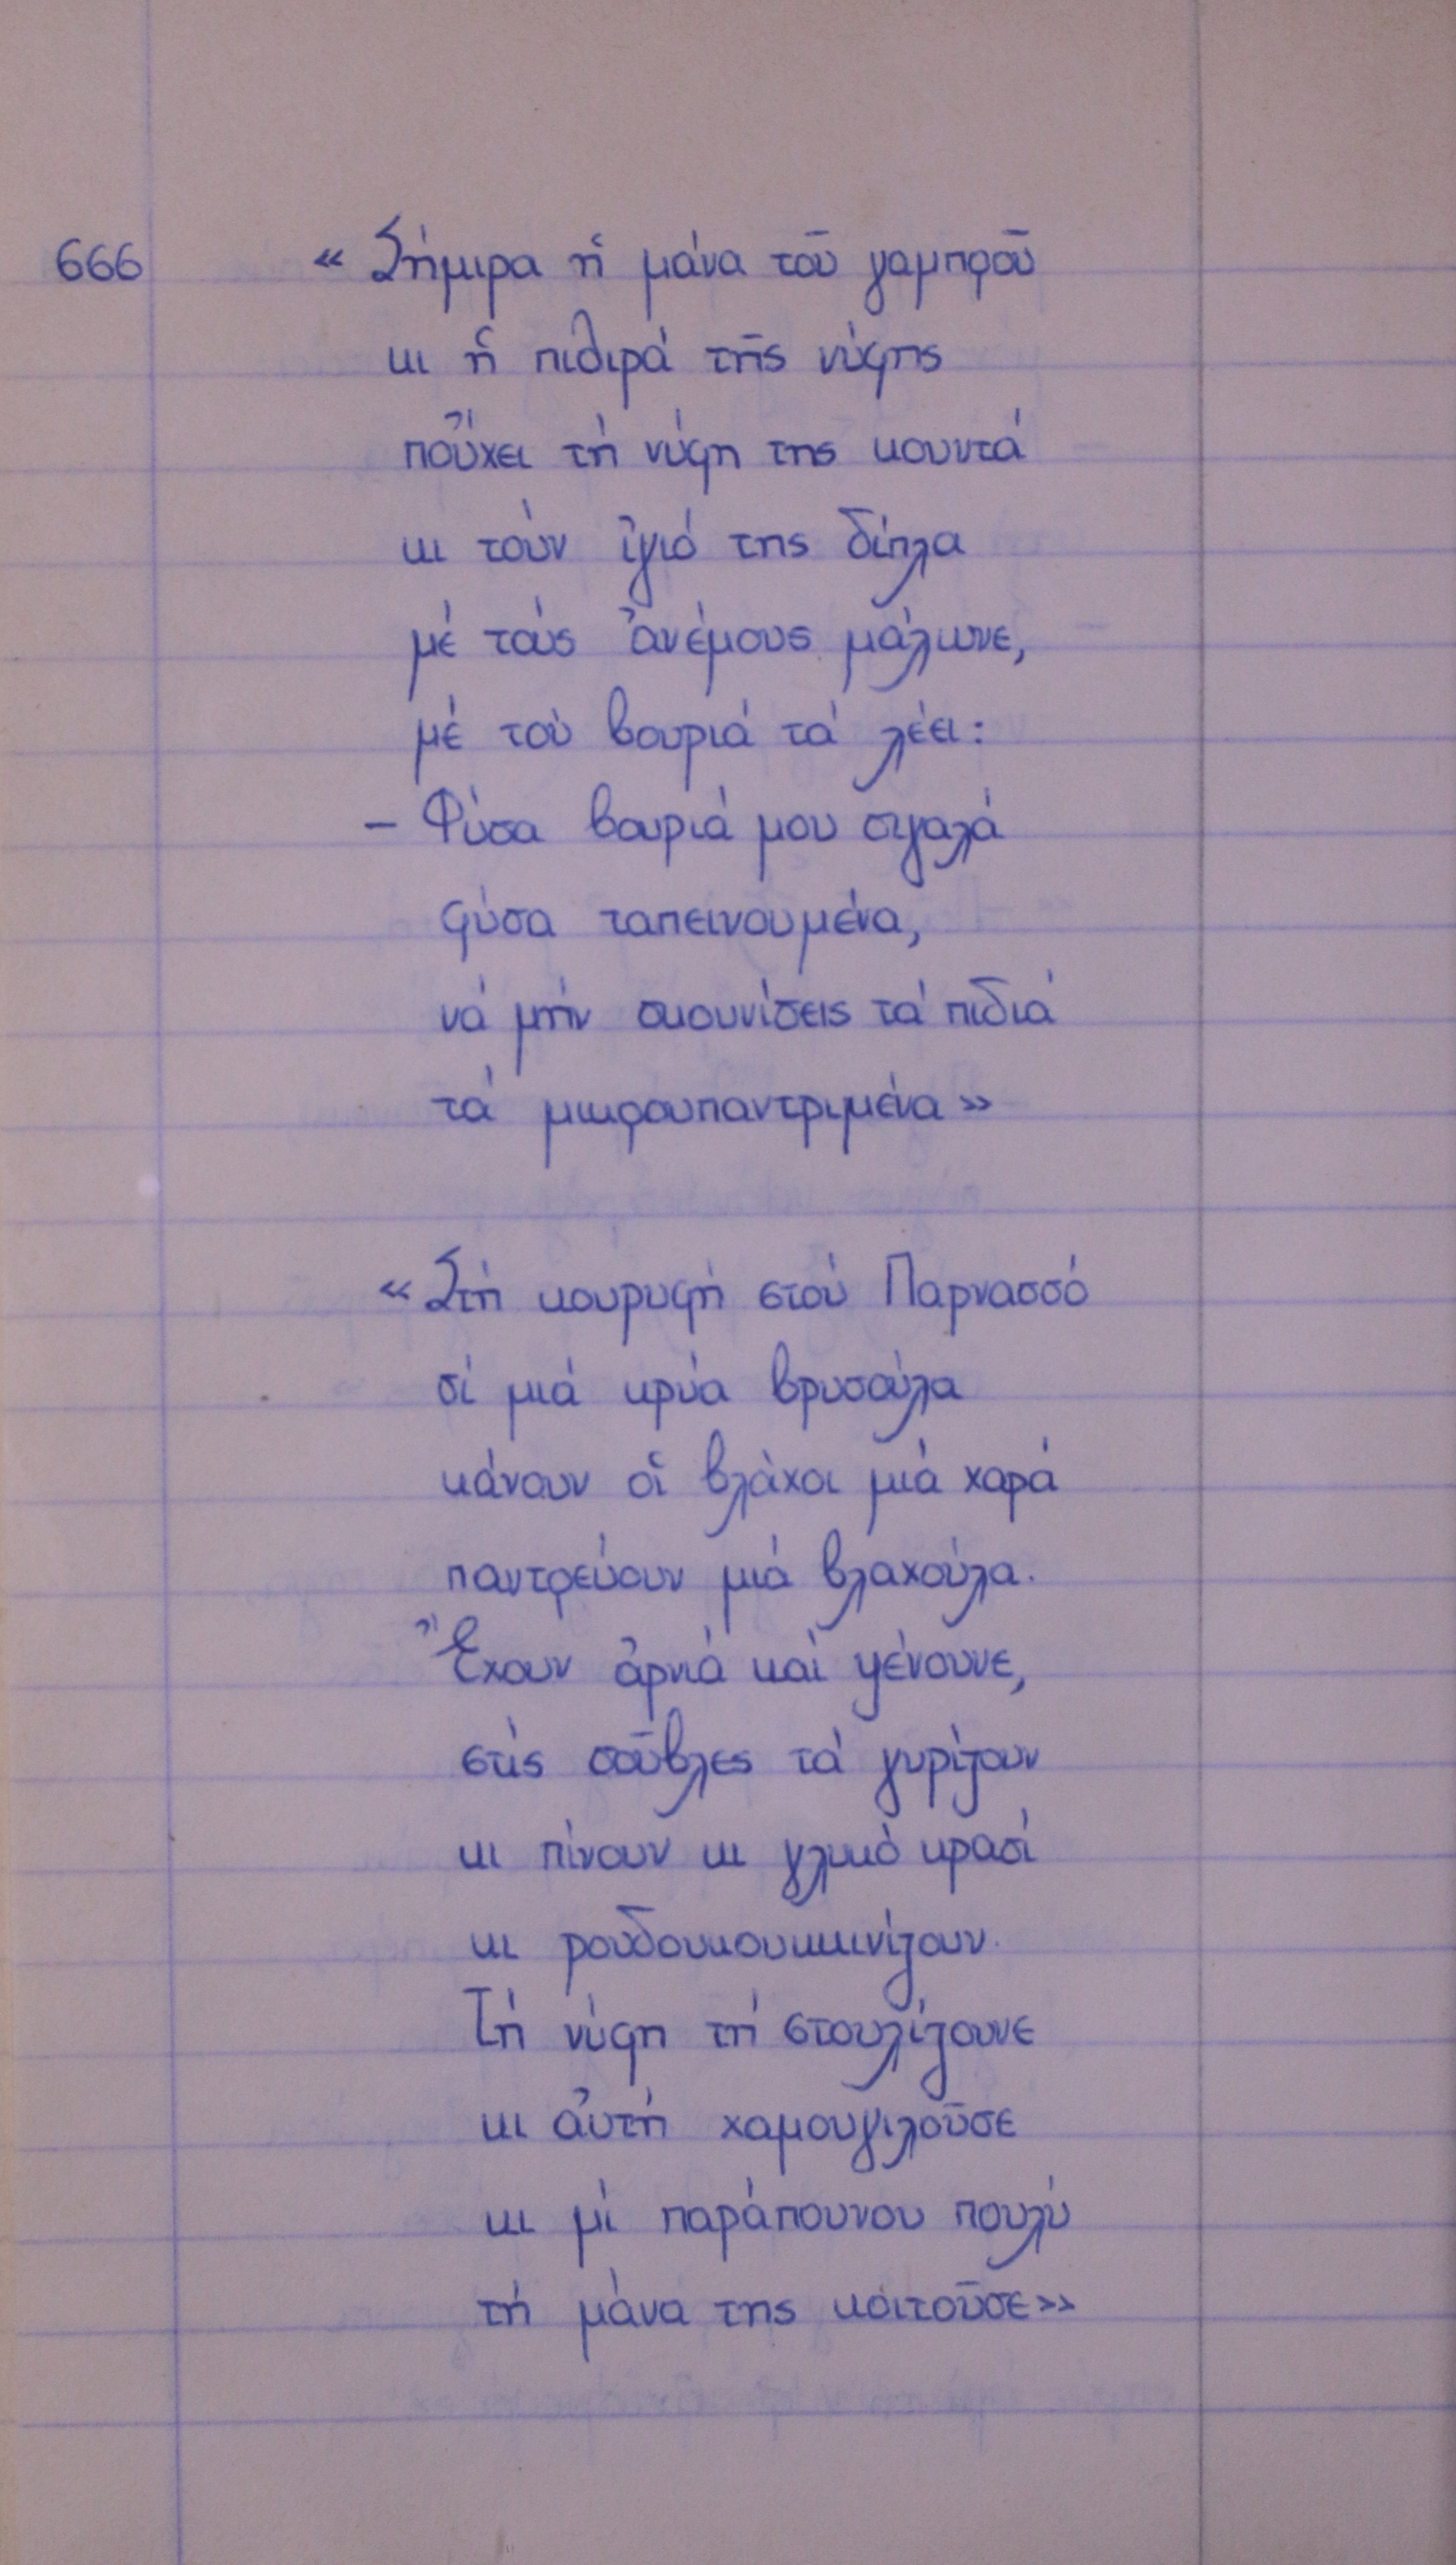 666 « Σήμιρα ἡ μάνα τοῦ γαμπροῦ
κι ἡ πιθιρά τῆς νύφης
πὄυχει τή νύφη της κουντά
κι τούν ἰγιό της δίπλα
μέ τούς ἀνέμους μάλωνε,
μέ τού βουριά τά λέει:
– Φύσα βουριά μου σιγαλά
φύσα ταπεινουμένα,
νά μήν σκουνίσεις τά πιδιά
τά μικρουπαντριμένα »
« Στή κουρυφή στού Παρνασσό
σί μιά κρύα βρυσούλα
κάνουν οἱ βλάχοι μιά χαρά
παντρεύουν μιά βλαχούλα.
Ἔχουν ἀρνιά καί ψένουνε,
στίς σοῦβλες τά γυρίζουν
κι πίνουν κι γλυκό κρασί
κι ρουδουκουκκινίζουν.
Τή νύφη τή στουλίζουνε
κι ἀυτή χαμουγιλοῦσε
κι μί παράπουνου πουλύ
τή μάνα της κοιτοῦσε»